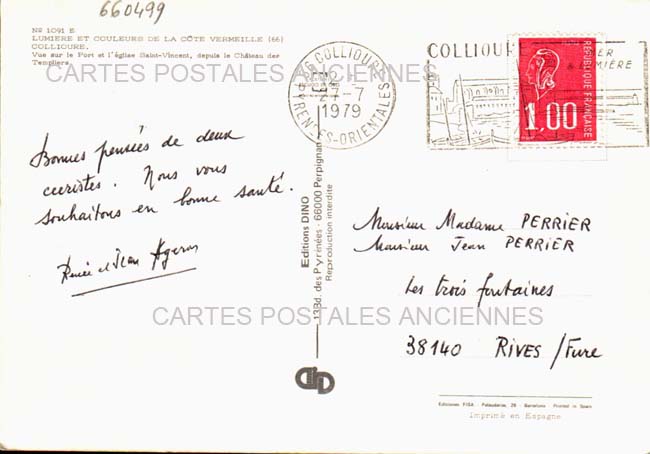 660499
Nº 1091 E
LUMIERE ET COULEURS DE LA CÔTE VERMEILLE (66)
COLLIOURE.
Vue sur le Port et l'église Saint-Vincent, depuis le Château des
Templiers.
CARTES POSTALES ANCIENNES
66 COLLIOURE
27-7
1979
PYRENEES-ORIENTALES
COLLIOURE
MER
& LUMIÈRE
REPUBLIQUE FRANÇAISE
1,00
Bonnes pensées de deux
curistes. Nous vous
souhaitons en bonne santé.
Renée et Jean Ageron
Editions DINO
13 Bd. des Pyrénées - 66000 Perpignan
Reproduction interdite
Monsieur Madame PERRIER
Monsieur Jean PERRIER
Les trois fontaines
38140 RIVES/Fure
CARTES POSTALES ANCIENNES
Ediciones FISA - Palaudarias, 26 - Barcelona - Printed in Spain
Imprimé en Espagne